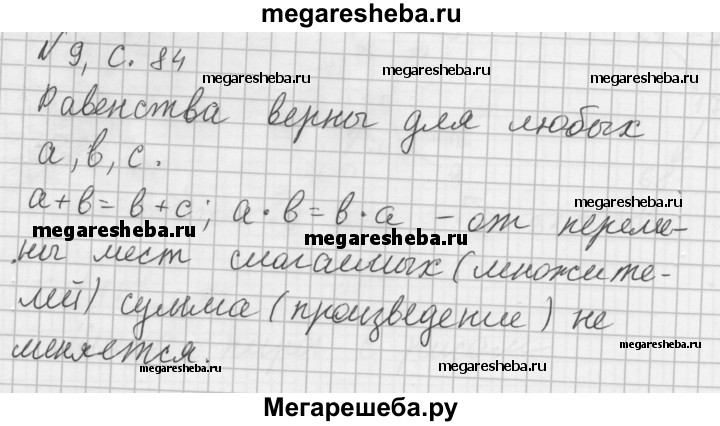 megaresheba.ru
N 9, с. 84
megaresheba.ru
megaresheba.ru
Равенства верны для любых
megaresheba.ru
megaresheba.ru
а, в, с.
а+в=в+с; а·в=в·а – от переме-
megaresheba.ru
megaresheba.ru
ны мест слагаемых (множите-
лей) сумма (произведение) не
меняется.
megaresheba.ru
megaresheba.ru
Мегарешеба.ру